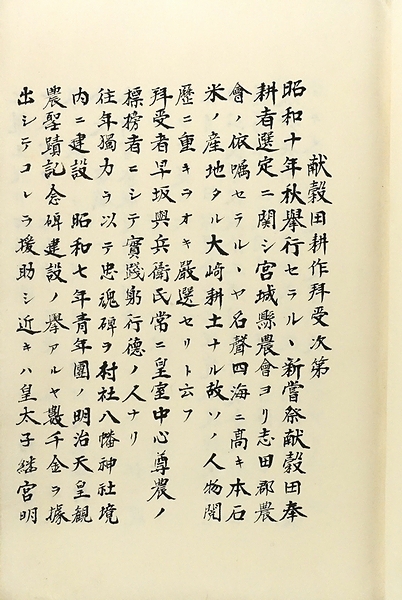 献穀田耕作拜受次第
昭和十年秋擧行セラルヽ新嘗祭献穀田奉
耕者選定ニ関シ宮城縣農會ヨリ志田郡農
會ノ依嘱セラルヽヤ名聲四海ニ髙キ本石
米ノ産地タル大崎耕土ナル故ソノ人物閲
歴ニ重キヲオキ嚴選セリト云フ
拜受者早坂興兵衛氏常ニ皇室中心尊農ノ
標榜者ニシテ實践躬行德ノ人ナリ
往年獨力ヲ以テ忠魂碑ヲ村社八幡神社境
内ニ建設 昭和七年青年團ノ明治天皇観
農聖蹟記念碑建設ノ擧アルヤ數千金ヲ據
出シテコレヲ援助シ近キハ皇太子継宮明